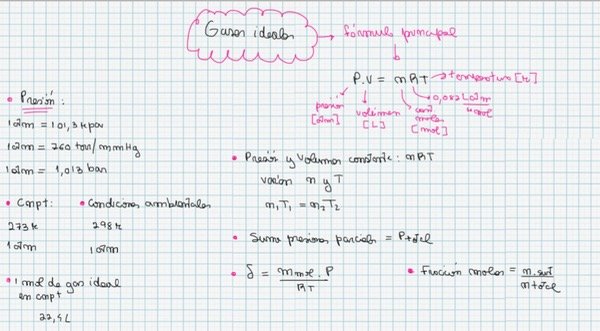 Gases ideales
fórmula principal
P.V = nRT
temperatura [K]
0,082 L atm
K mol
presión
[atm]
volumen
[L]
cant
moles
[mol]
• Presión:
1 atm = 101,3 kpa
1 atm = 760 torr/mmHg
1 atm = 1,013 bar
• Cnpt:
273 K
1 atm
• Condiciones ambientales
298 K
1 atm
• 1 mol de gas ideal
en cnpt
22,4 L
• Presión y volumen constante: nRT
varían n y T
n₁T₁ = n₂T₂
• Suma presiones parciales = P total
• δ = mmol . P
RT
• Fracción molar = n. sust
n total